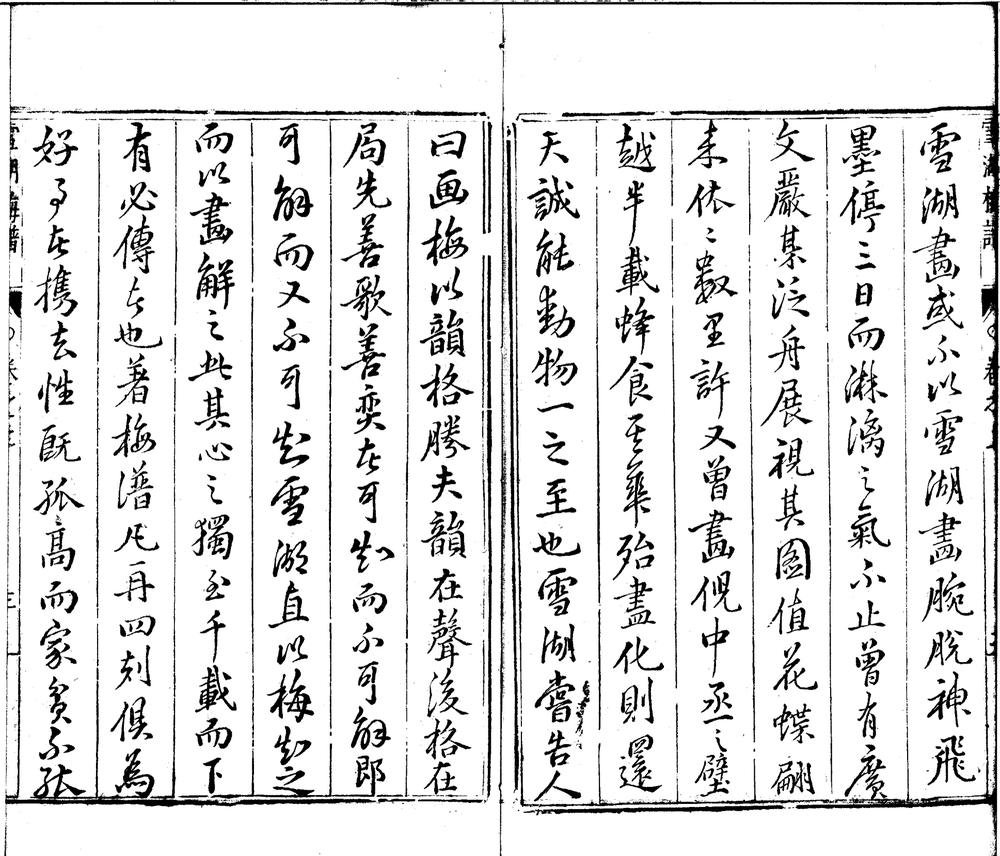 雪湖畫或不以雪湖畫腕脫神飛
墨停三日而淋漓之氣不止曾有廣
文嚴某泛舟展視其圖值花蝶翩
來依〻數里許又曾畫倪中丞之壁
越半載蜂食其華殆盡化則還
天誠能動物一之至也雪湖嘗告人
曰画梅以韻格勝夫韻在聲後格在
局先善歌善奕者可知而不可解即
可解而又不可知雪湖直以梅知之
而以畫解之此其心之獨至千載而下
有必傳者也著梅譜凡再四刻俱為
好事者攜去性既孤高而家貧不能
雪湖梅譜
雪湖梅譜